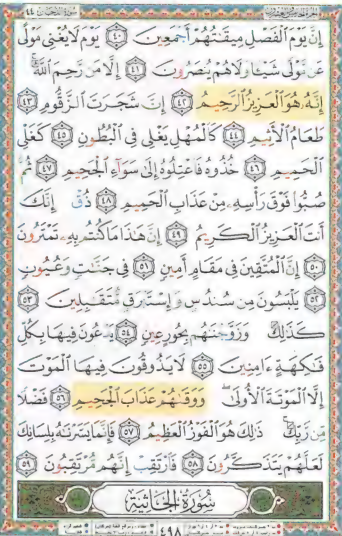 سُورَةُ الدُّخَانِ ٤٤
إِنَّ يَوْمَ الْفَصْلِ مِيقَاتُهُمْ أَجْمَعِينَ ٤٠ يَوْمَ لَا يُغْنِي مَوْلًى
عَن مَّوْلًى شَيْئًا وَلَا هُمْ يُنصَرُونَ ٤١ إِلَّا مَن رَّحِمَ اللَّهُ
إِنَّهُ هُوَ الْعَزِيزُ الرَّحِيمُ ٤٢ إِنَّ شَجَرَتَ الزَّقُّومِ ٤٣
طَعَامُ الْأَثِيمِ ٤٤ كَالْمُهْلِ يَغْلِي فِي الْبُطُونِ ٤٥ كَغَلْيِ
الْحَمِيمِ ٤٦ خُذُوهُ فَاعْتِلُوهُ إِلَى سَوَاءِ الْجَحِيمِ ٤٧ ثُمَّ
صُبُّوا فَوْقَ رَأْسِهِ مِنْ عَذَابِ الْحَمِيمِ ٤٨ ذُقْ إِنَّكَ
أَنتَ الْعَزِيزُ الْكَرِيمُ ٤٩ إِنَّ هَذَا مَا كُنتُم بِهِ تَمْتَرُونَ
٥٠ إِنَّ الْمُتَّقِينَ فِي مَقَامٍ أَمِينٍ ٥١ فِي جَنَّاتٍ وَعُيُونٍ
٥٢ يَلْبَسُونَ مِن سُندُسٍ وَإِسْتَبْرَقٍ مُّتَقَابِلِينَ ٥٣
كَذَلِكَ وَزَوَّجْنَاهُم بِحُورٍ عِينٍ ٥٤ يَدْعُونَ فِيهَا بِكُلِّ
فَاكِهَةٍ ءَامِنِينَ ٥٥ لَا يَذُوقُونَ فِيهَا الْمَوْتَ
إِلَّا الْمَوْتَةَ الْأُولَى وَوَقَاهُمْ عَذَابَ الْجَحِيمِ ٥٦ فَضْلًا
مِّن رَّبِّكَ ذَلِكَ هُوَ الْفَوْزُ الْعَظِيمُ ٥٧ فَإِنَّمَا يَسَّرْنَاهُ بِلِسَانِكَ
لَعَلَّهُمْ يَتَذَكَّرُونَ ٥٨ فَارْتَقِبْ إِنَّهُم مُّرْتَقِبُونَ ٥٩
سُورَةُ الْجَاثِيَةِ
٤٩٨